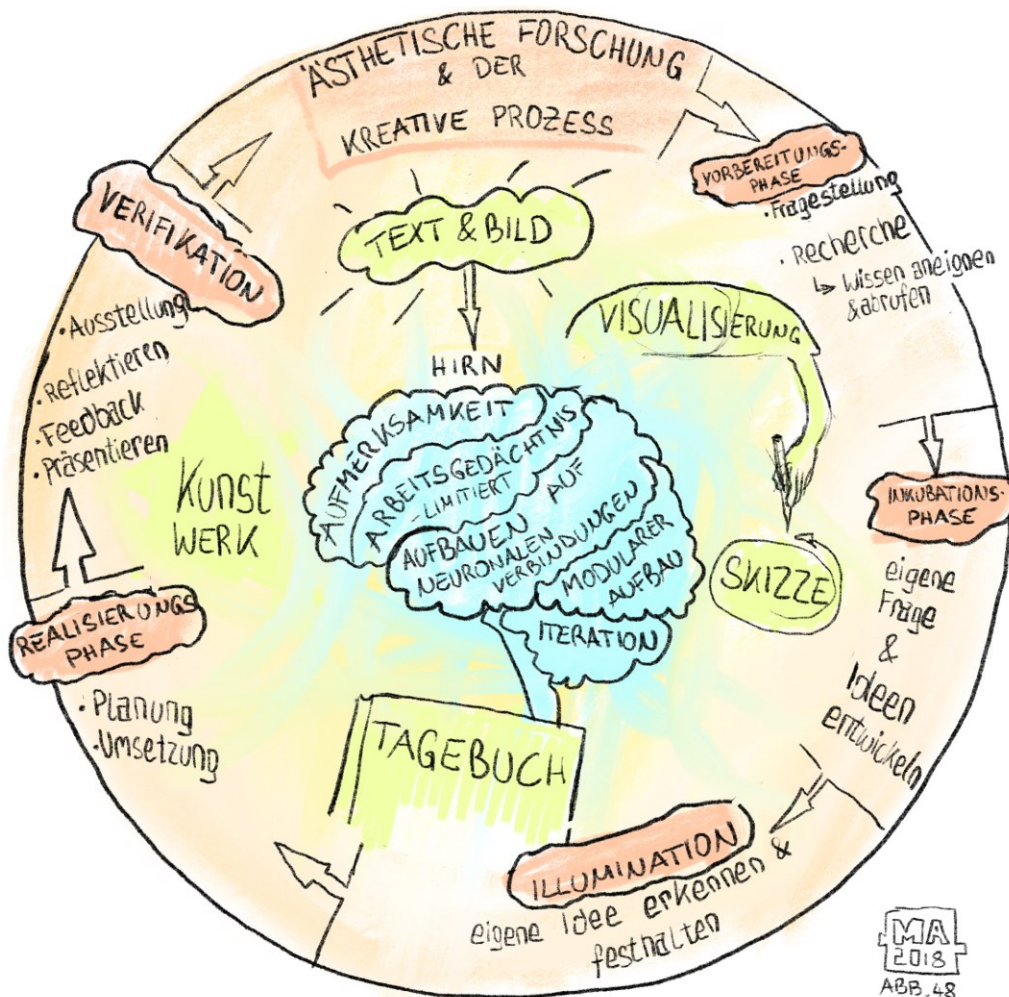 ÄSTHETISCHE FORSCHUNG
& DER
KREATIVE PROZESS
VORBEREITUNGS-
PHASE
·Fragestellung
·Recherche
↳ Wissen aneignen
& abrufen
INKUBATIONS-
PHASE
eigene
Frage
&
Ideen
entwickeln
ILLUMINATION
eigene Idee erkennen &
festhalten
REALISIERUNGS
PHASE
·Planung
·Umsetzung
VERIFIKATION
·Ausstellung
·Reflektieren
·Feedback
·Präsentieren
TEXT & BILD
HIRN
AUFMERKSAMKEIT
ARBEITSGEDÄCHTNIS
-LIMITIERT
AUFBAUEN AUF
NEURONALEN
VERBINDUNGEN
MODULARER
AUFBAU
ITERATION
VISUALISIERUNG
SKIZZE
TAGEBUCH
Kunst
WERK
MA
2018
ABB. 48